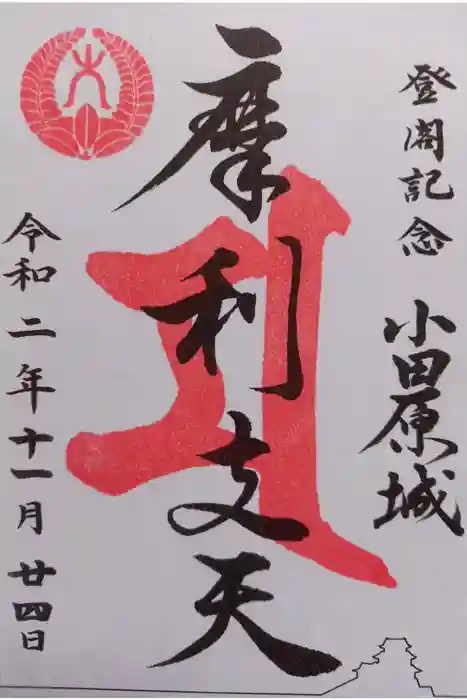 登閣記念　小田原城
摩利支天
令和二年十一月廿四日